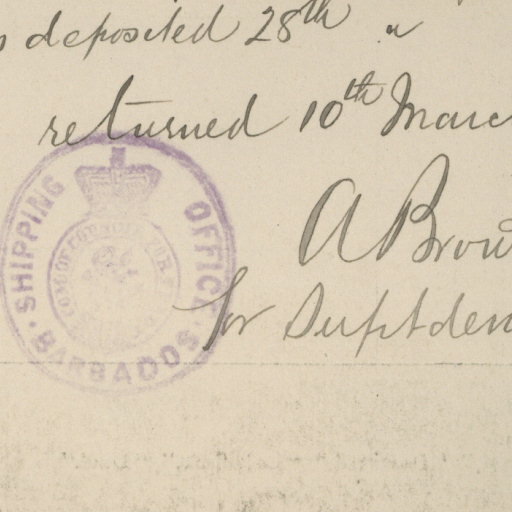 deposited 28th "
returned 10th Marc
A Brow
for Suptden
SHIPPING OFFICE
· BARBADOS ·